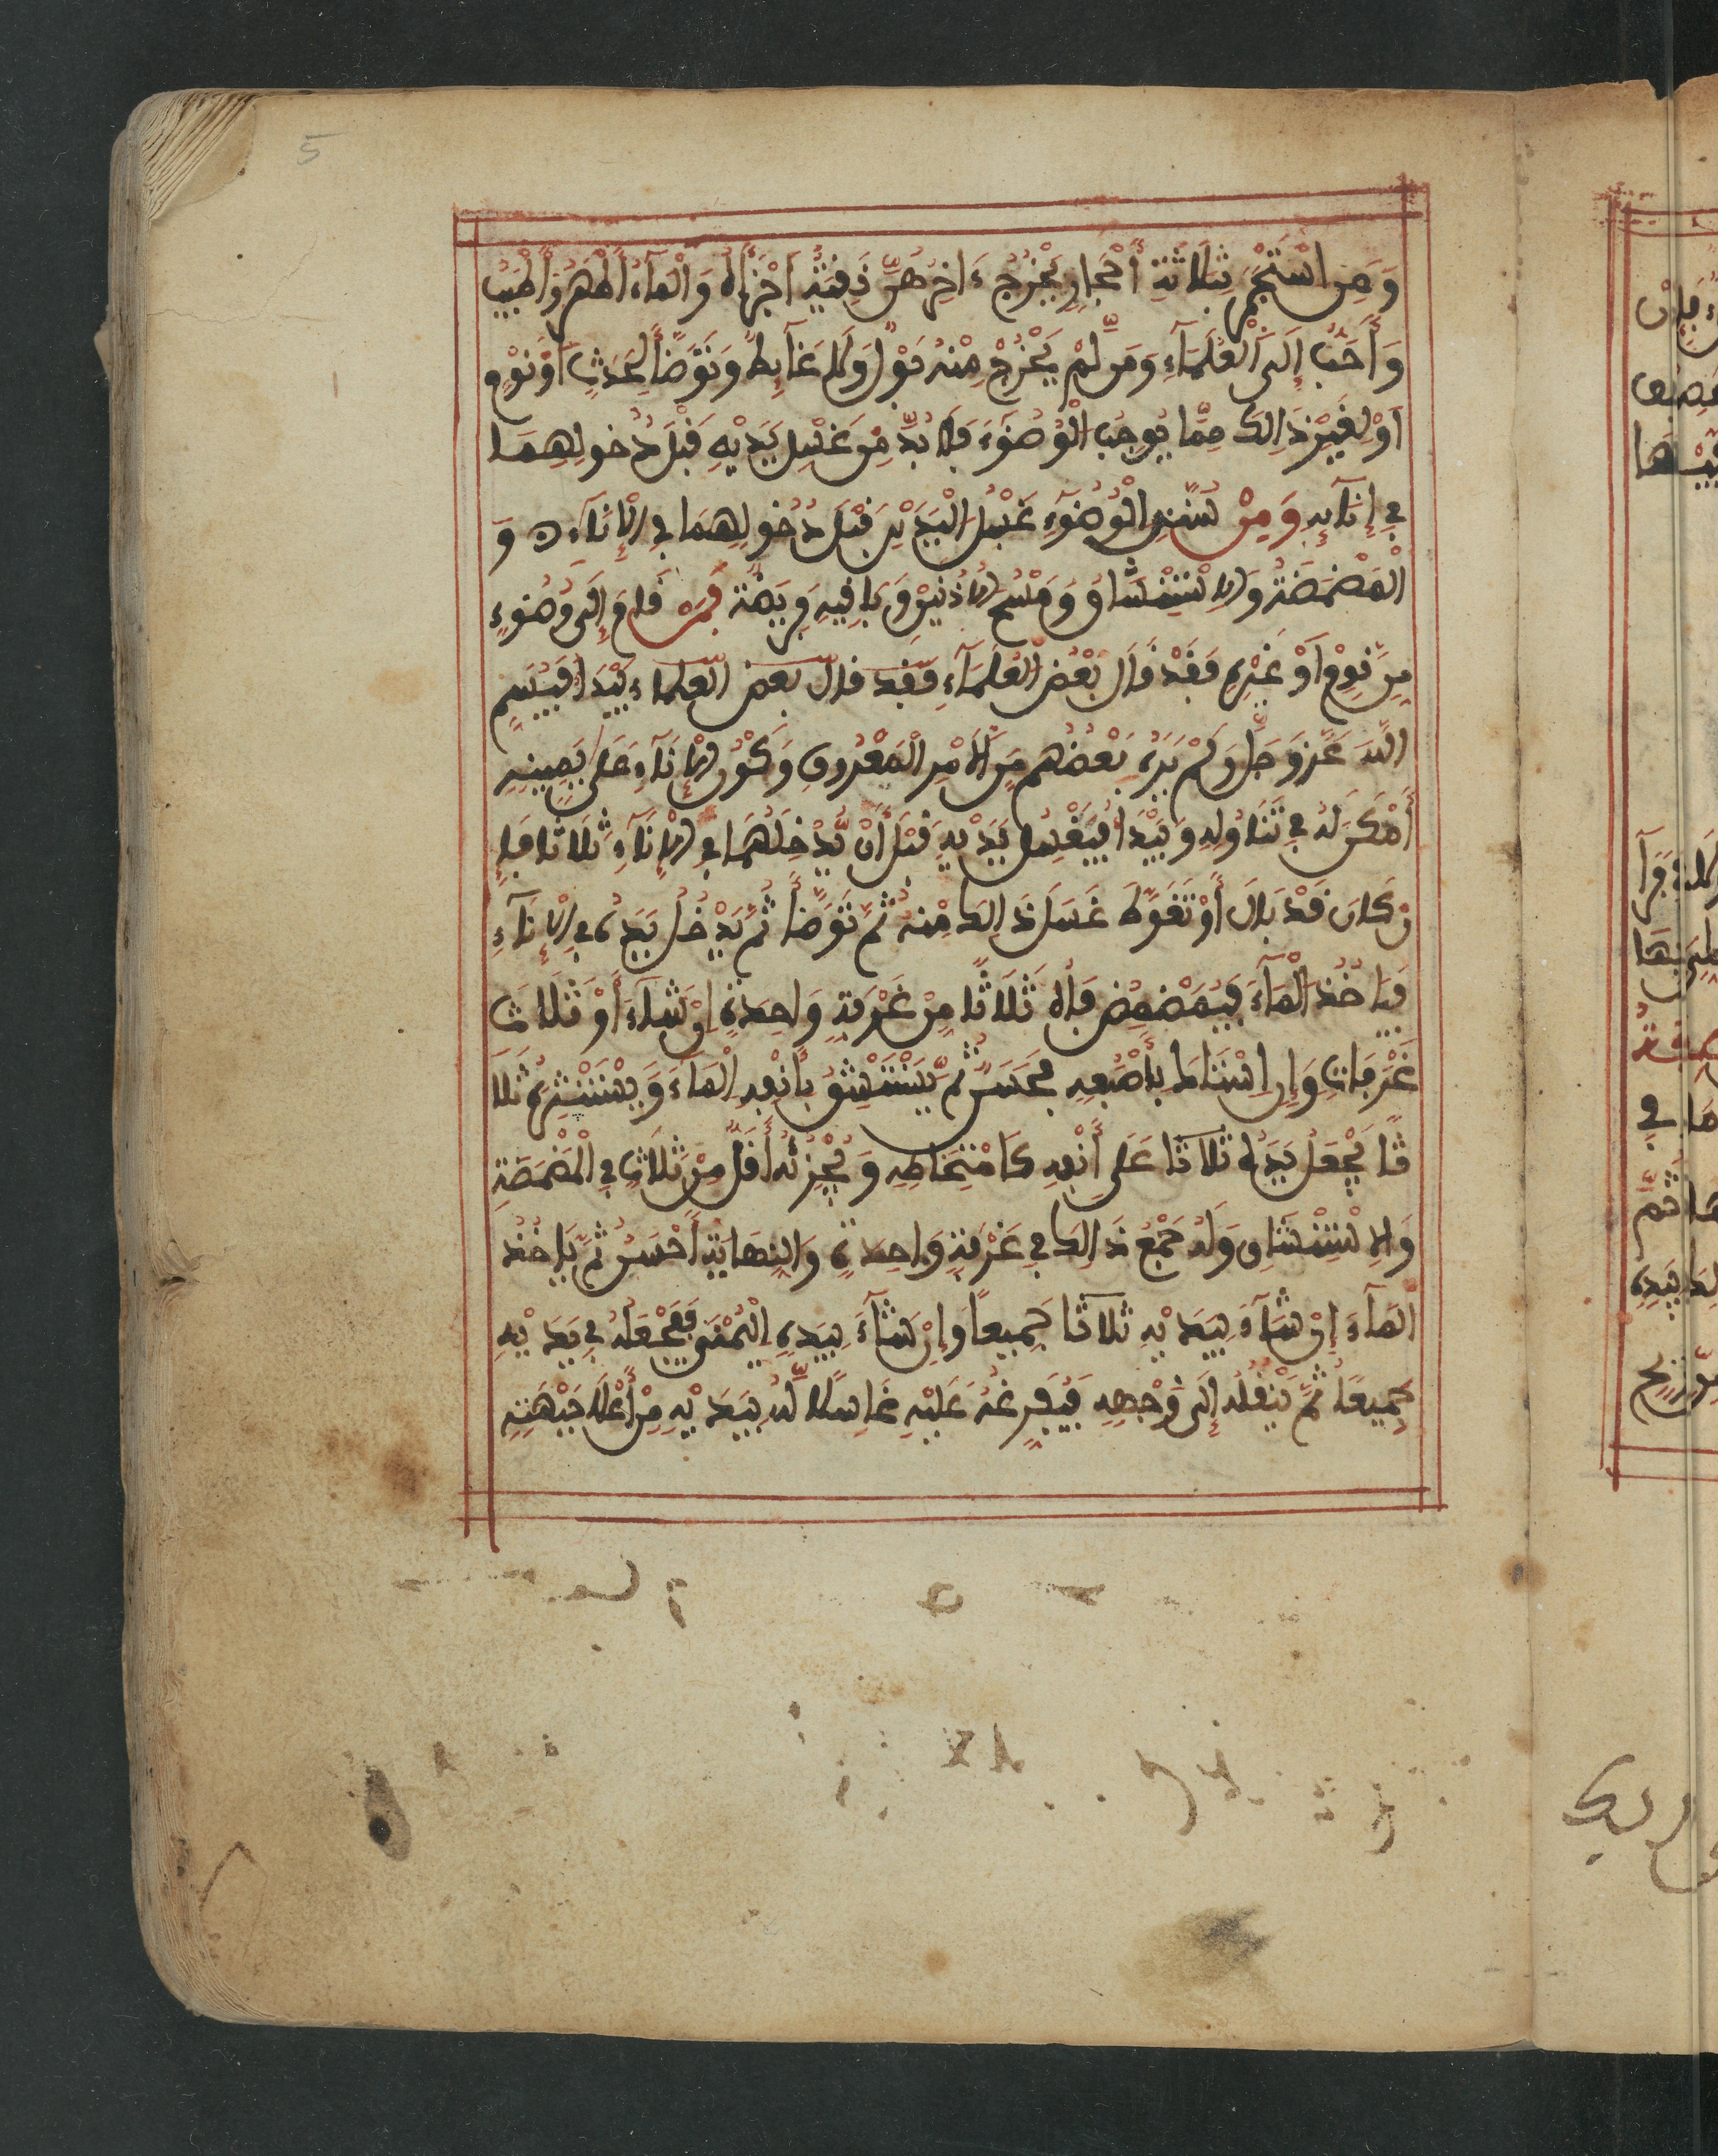 5
وَمَنِ اسْتَجْمَرَ بِثَلَاثَةِ أَحْجَارٍ يَخْرُجُ ءَاخِرُهُنَّ نَقِيَّةً أَجْزَأَهُ وَالْمَآءُ أَطْهَرُ وَأَطْيَبُ
وَأَحَبُّ إِلَى الْعُلَمَآءِ وَمَن لَّمْ يَخْرُجْ مِنْهُ بَوْلٌ وَلَا غَآئِطٌ وَتَوَضَّأَ لِحَدَثٍ أَوْ نَوْمٍ
أَوْ لِغَيْرِ ذَالِكَ مِمَّا يُوجِبُ الْوُضُوءَ فَلَا بُدَّ مِنْ غَسْلِ يَدَيْهِ قَبْلَ دُخُولِهِمَا
فِي إِنَآئِهِ وَمِنْ سُنَنِ الْوُضُوءِ غَسْلُ الْيَدَيْنِ قَبْلَ دُخُولِهِمَا فِي الْإِنَآءِ وَ
الْمَضْمَضَةُ وَالِاسْتِنْشَاقُ وَمَسْحُ الْأُذُنَيْنِ وَبَاقِيهِ فَرِيضَةٌ فَمَن قَامَ إِلَى وُضُوءٍ
مِن نَوْمٍ أَوْ غَيْرِهِ فَقَدْ قَالَ بَعْضُ الْعُلَمَآءِ فقد قال بعض العلماء يَبْدَأُ فَيُسَمِّ
اللَّهَ عَزَّ وَجَلَّ وَلَمْ يَرَهُ بَعْضُهُمْ مِنَ الْأَمْرِ الْمَعْرُوفِ وَكَوْنُ الْإِنَآءِ عَلَى يَمِينِهِ
أَمْكَنُ لَهُ فِي تَنَاوُلِهِ وَيَبْدَأُ فَيَغْسِلُ يَدَيْهِ قَبْلَ أَنْ يُدْخِلَهُمَا فِي الْإِنَآءِ ثَلَاثًا فَإِ
ن كَانَ قَدْ بَالَ أَوْ تَغَوَّطَ غَسَلَ ذَالِكَ مِنْهُ ثُمَّ تَوَضَّأَ ثُمَّ يُدْخِلُ يَدَهُ فِي الْإِنَآءِ
فَيَأْخُذُ الْمَآءَ فَيُمَضْمِضُ فَاهُ ثَلَاثًا مِنْ غَرْفَةٍ وَاحِدَةٍ إِنْ شَآءَ أَوْ ثَلَاثَ
غَرَفَاتٍ وَإِنِ اسْتَاكَ بِأَصْبُعِهِ فَحَسَنٌ ثُمَّ يَسْتَنْشِقُ بِأَنْفِهِ الْمَآءَ وَيَسْتَنْثِرُهُ ثَلَا
ثًا يَجْعَلُ يَدَهُ ثَلَاثًا عَلَى أَنْفِهِ كَامْتِخَاطِهِ وَيُجْزِئُهُ أَقَلُّ مِنْ ثَلَاثٍ فِي الْمَضْمَضَةِ
وَالِاسْتِنْشَاقِ وَلَهُ جَمْعُ ذَالِكَ فِي غَرْفَةٍ وَاحِدَةٍ وَالنِّهَايَةُ أَحْسَنُ ثُمَّ يَأْخُذُ
الْمَآءَ إِنْ شَآءَ بِيَدَيْهِ ثَلَاثًا جَمِيعًا وَإِنْ شَآءَ بِيَدِهِ الْيُمْنَى فَيَجْعَلُهُ فِي يَدَيْهِ
جَمِيعًا ثُمَّ يَنْقُلُهُ إِلَى وَجْهِهِ فَيُفْرِغُهُ عَلَيْهِ غَاسِلًا لَّهُ بِيَدَيْهِ مِنْ أَعْلَا جَبْهَتِهِ